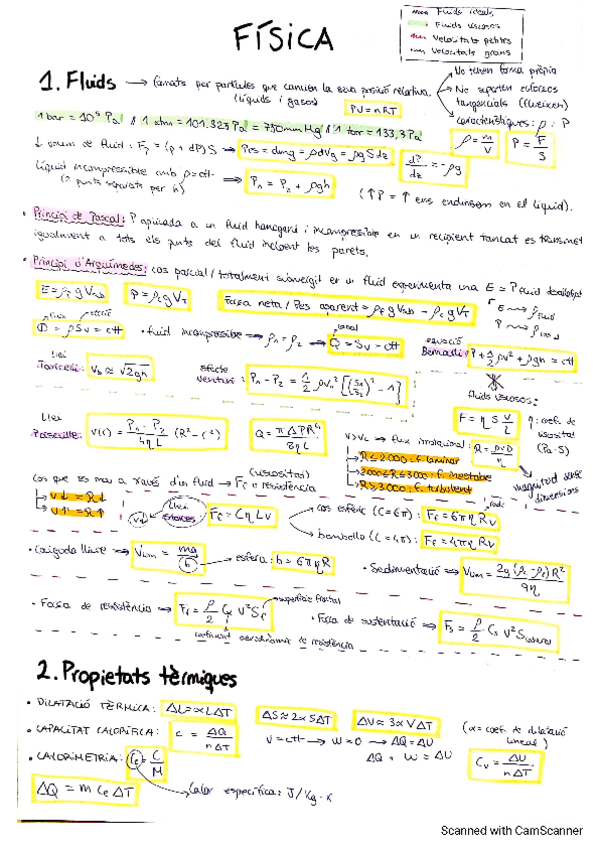 Fluids ideals
Fluids viscosos
Velocitats petites
Velocitats grans
FÍSICA
1. Fluids → Formats per partícules que canvien la seva posició relativa.
(líquids i gasos)
No tenen forma pròpia
No suporten esforços tangencials (flueixen)
Característiques: ρ i P
PV = nRT
1 bar = 10⁵ Pa // 1 atm = 101.325 Pa = 750mmHg // 1 torr = 133,3 Pa
ρ = m/V
P = F/S
↓ volum de fluid: F₂ = (p + dP) S → Pes = dmg = ρdVg = ρg S dz
dP/dz = -ρg
Líquid incompressible amb ρ = ctt
(2 punts separats per h) ⇒ P₁ = P₂ + ρgh
(↑P = ↑ ens endinsem en el líquid).
• Principi de Pascal: P aplicada a un fluid homogeni i incompressible en un recipient tancat es transmet
igualment a tots els punts del fluid incloent les parets.
• Principi d'Arquímedes: cos parcial / totalment submergit en un fluid experimenta una E = P fluid desallotjat
Força neta / Pes aparent =
E → ρ fluid
P → ρ cos
Φ = ρSv = ctt
• fluid incompressible → ρ₁ = ρ₂ → Q = Sv = ctt
canal
equació
Bernoulli: P + 1/2 ρv² + ρgh = ctt
Llei
Torricelli: V_b ≈ √2gh
efecte
Venturi: P₁ - P₂ = 1/2 ρv₁² [(S₁/S₂)² - 1]
fluids viscosos:
F = η S v/L
η: coef. de viscositat
(Pa·S)
Llei
Poiseuille: v(r) = P₁-P₂/4ηL (R² - r²)
Q = πΔPR⁴/8ηL
flux irrotacional: R = ρvD/η
R ≤ 2000: f. laminar
2000 ≤ R ≤ 3000: f. inestable
R > 3000: f. turbulent
magnitud sense
dimensions
cos que es mou a través d'un fluid → F_f o resistència
(viscositat)
v↓ = R↓
v↑ = R↑
Llei
Stokes
F_f = CηLv
cos esfèric (C=6π): F_f = 6πηRv
bombolla (C=4π): F_f = 4πηRv
• Caiguda lliure ⇒ V_lim = mg/b → esfera: b = 6πηR
• Sedimentació ⇒ V_lim =
• Força de resistència ⇒ F_f = ρ/2 C_f v² S_f
superfície frontal
coeficient aerodinàmic de resistència
• Força de sustentació ⇒
2. Propietats tèrmiques
• DILATACIÓ TÈRMICA: ΔL = αLΔT
ΔS ≈ 2αSΔT
ΔV ≈ 3αVΔT
(α = coef. de dilatació
lineal)
• CAPACITAT CALORÍFICA: C = ΔQ/nΔT
V = ctt → W = 0 → ΔQ = ΔU
C_v = ΔU/nΔT
• CALORIMETRIA: C_e = C/M
ΔQ = m C_e ΔT
Calor específica: J/kg·K
Scanned with CamScanner